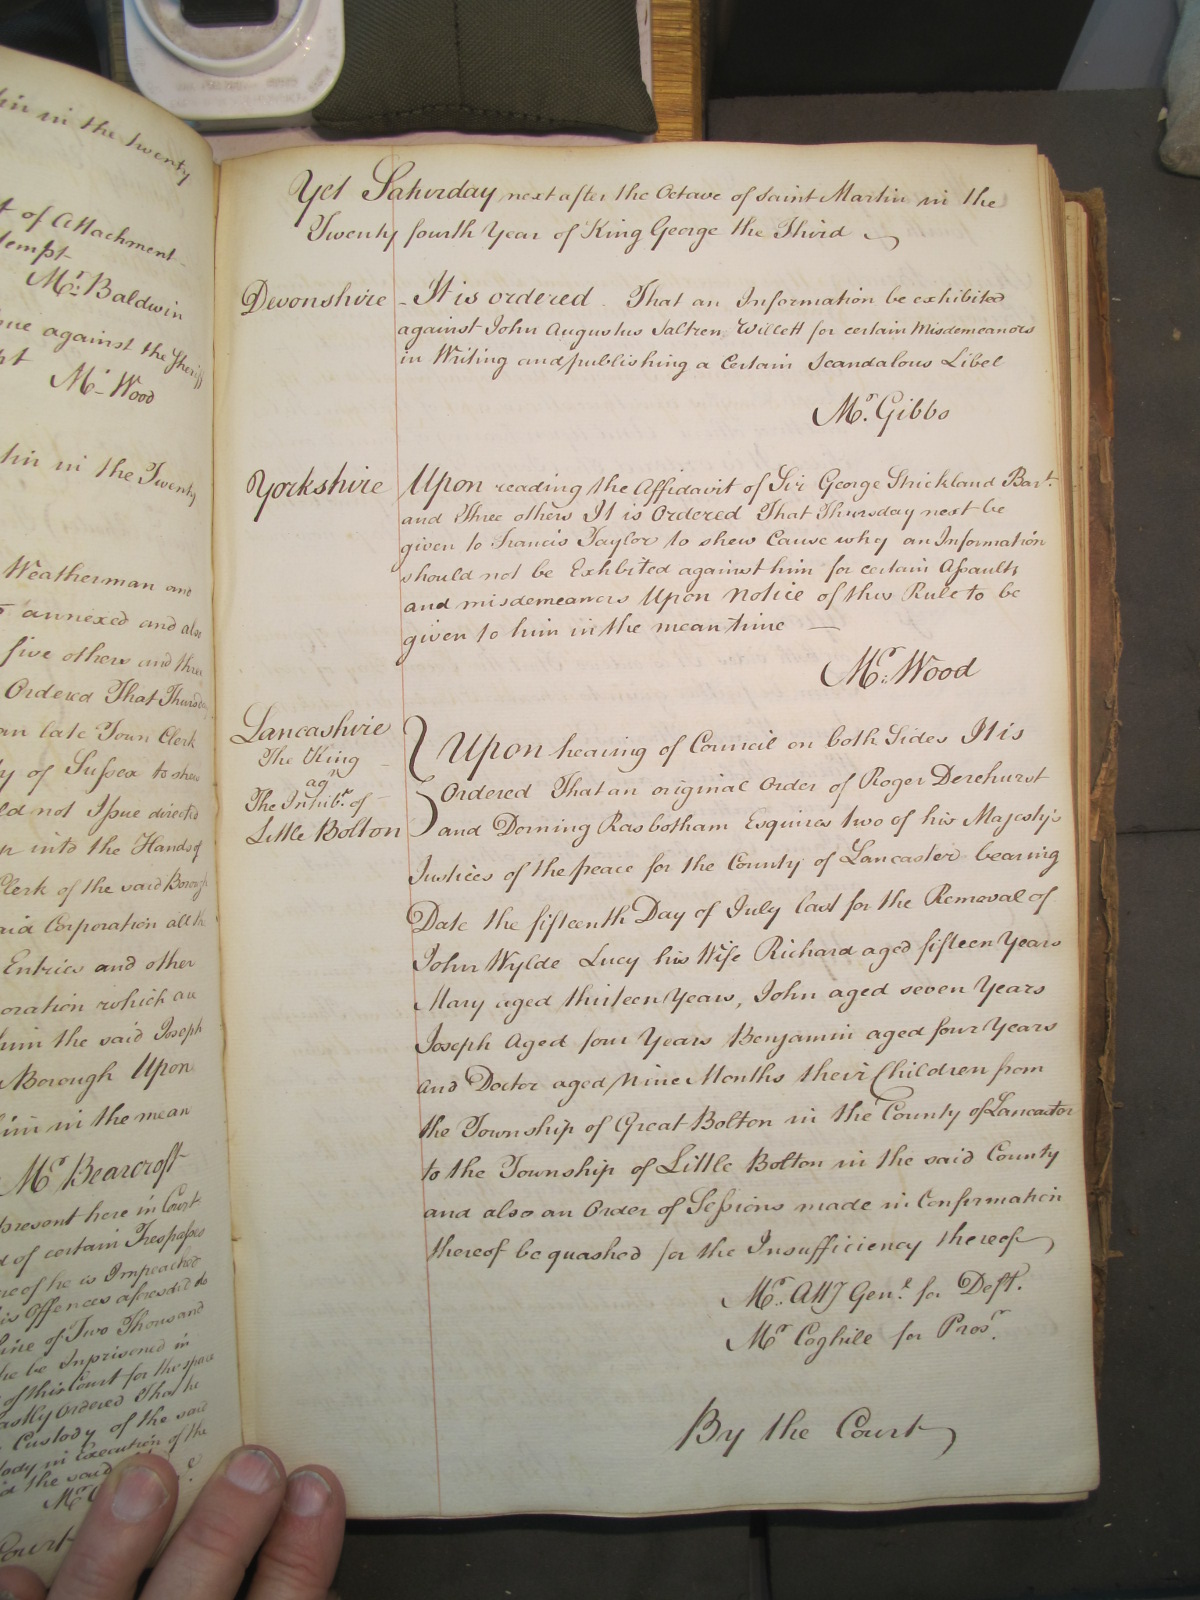 hin in the twenty
of Attachment
tempt
Mr. Baldwin
against the Sheriff
Mr. Wood
in the Twenty
Weatherman and
annexed and also
five others and three
Ordered That Thursday
late Town Clerk
of Sussex to shew
not Issue directed
into the Hands of
Clerk of the said Borough
Corporation all the
Entries and other
which are
him the said Joseph
Borough Upon
in the mean
Mr. Bearcroft
present here in Court
of certain Trespasses
of he is Impeached
Offences aforesaid do
of Two Thousand
he be Inprisoned in
of this Court for the space
Ordered That he
Custody of the said
in Execution of the
the said
Court
Yet Saturday next after the Octave of Saint Martin in the
Twenty fourth Year of King George the Third
Devonshire - It is ordered . That an Information be exhibited
against John Augustus Saltren Willett for certain Misdemeanors
in Writing and publishing a Certain Scandalous Libel
Mr. Gibbs
Yorkshire Upon reading the Affidavit of Sir George Strickland Bart.
and Three others It is Ordered That Thursday next be
given to Francis Taylor to shew Cause why an Information
should not be Exhibited against him for certain Assaults
and misdemeanors Upon Notice of this Rule to be
given to him in the mean time —
Mr. Wood
Lancashire
The King
agt
The Inhibts. of
Little Bolton
Upon hearing of Council on both Sides It is
Ordered That an original Order of Roger Derehurst
and Dorning Rasbotham Esquires two of his Majesty's
Justices of the peace for the County of Lancaster bearing
Date the fifteenth Day of July last for the Removal of
John Wylde Lucy his Wife Richard aged fifteen Years
Mary aged thirteen Years, John aged seven Years
Joseph Aged four Years Benjamin aged four Years
and Doctor aged Nine Months their Children from
the Township of Great Bolton in the County of Lancaster
to the Township of Little Bolton in the said County
and also an Order of Sessions made in Confirmation
thereof be quashed for the Insufficiency thereof
Mr. Atty Genl. for Deft.
Mr Coghile for Prosr.
By the Court